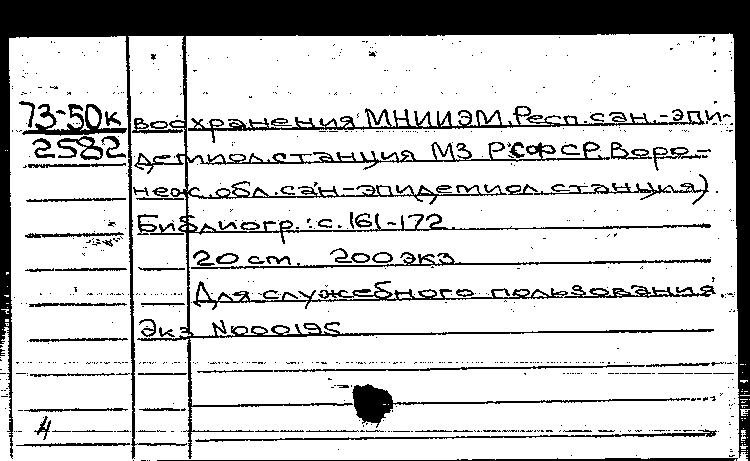 73-50к
2582
воохранения МНИИЭМ, Респ. сан.-эпи-
демиол. станция МЗ РСФСР, Воро-
неж. обл. сан-эпидемиол. станция).
Библиогр.: с. 161-172.
20 cm. 200 экз.
Для служебного пользования.
Экз N000195
4